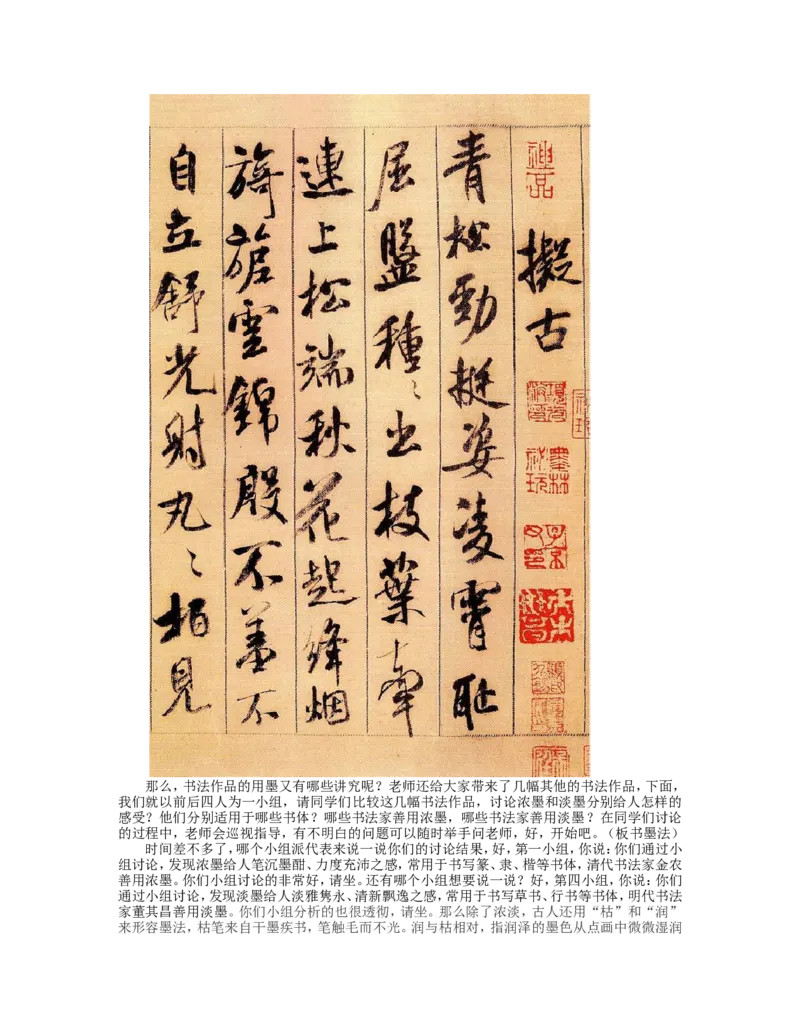 擬古
青松勁挺姿凌霄耻
屈盤種〻出枝葉牽
連上松端秋花起絳烟
旖旎雲錦殷不羞不
自立舒光射丸〻柏見
那么，书法作品的用墨又有哪些讲究呢？老师还给大家带来了几幅其他的书法作品，下面，
我们就以前后四人为一小组，请同学们比较这几幅书法作品，讨论浓墨和淡墨分别给人怎样的
感受？他们分别适用于哪些书体？哪些书法家善用浓墨，哪些书法家善用淡墨？在同学们讨论
的过程中，老师会巡视指导，有不明白的问题可以随时举手问老师，好，开始吧。（板书墨法）
时间差不多了，哪个小组派代表来说一说你们的讨论结果，好，第一小组，你说：你们通过小
组讨论，发现浓墨给人笔沉墨酣、力度充沛之感，常用于书写篆、隶、楷等书体，清代书法家金农
善用浓墨。你们小组讨论的非常好，请坐。还有哪个小组想要说一说？好，第四小组，你说：你们
通过小组讨论，发现淡墨给人淡雅隽永、清新飘逸之感，常用于书写草书、行书等书体，明代书法
家董其昌善用淡墨。你们小组分析的也很透彻，请坐。那么除了浓淡，古人还用“枯”和“润”
来形容墨法，枯笔来自干墨疾书，笔触毛而不光。润与枯相对，指润泽的墨色从点画中微微湿润